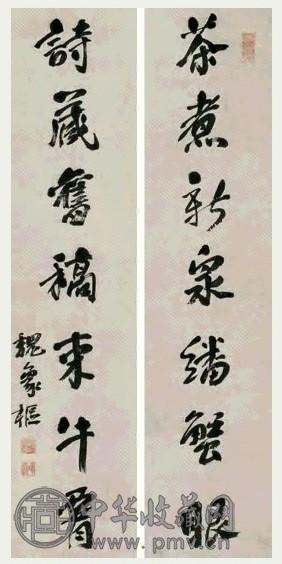 茶煮新泉繙蟹眼
詩藏舊稿束牛腰
魏象樞
中华收藏网
www.pmv.cn